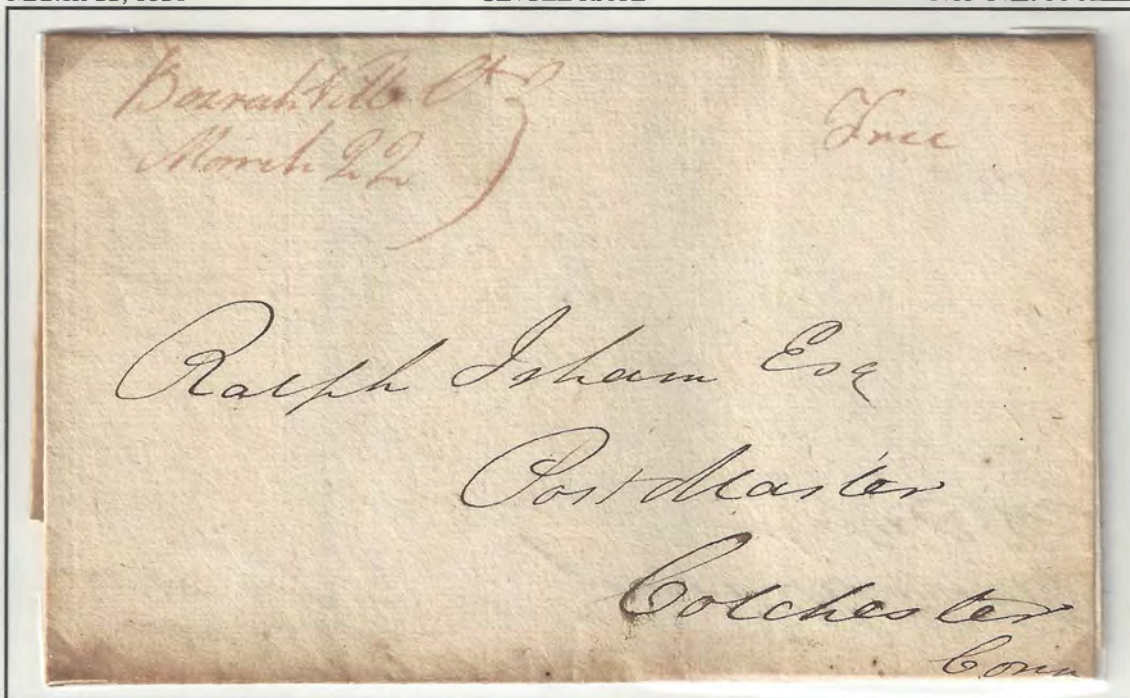 Bozrahville Ct
March 22
Free
Ralph Isham Esq
Post Master
Colchester
Conn